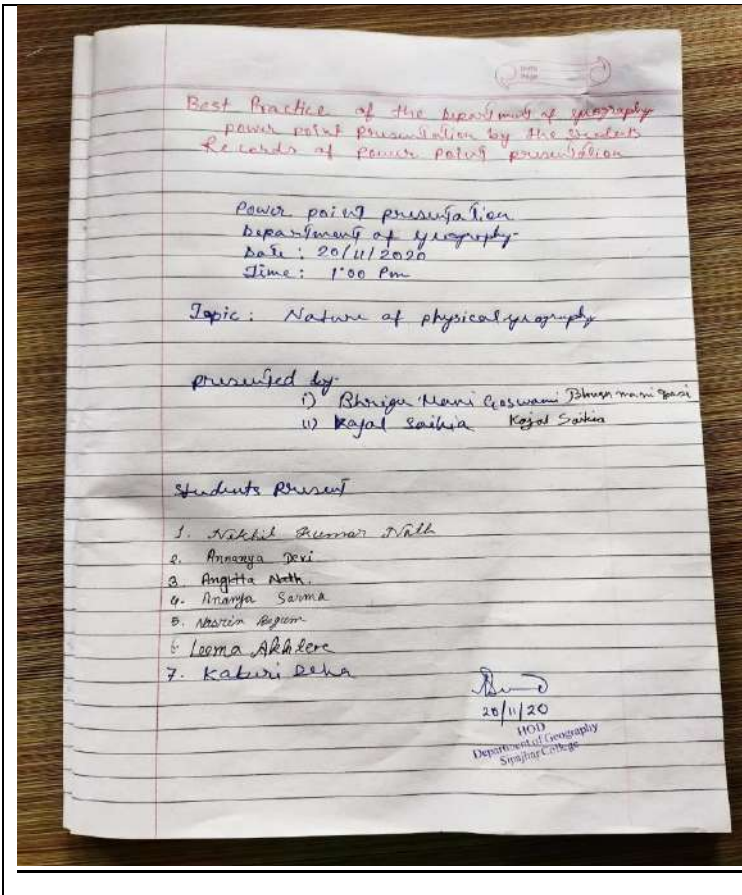 Best Practice of the Department of geography
power point presentation by the students
Records of power point presentation
Power point presentation
Department of geography
Date : 20/11/2020
Time : 1:00 Pm
Topic : Nature of physical geography
presented by
i) Bhrigu Mani Goswami
ii) Kajal Saikia Kajal Saikia
Students Present
1. Nikhil Kumar Nath
2. Annanya Devi
3. Angitta Nath.
4. Ananya Sarma
5. Nasrin Begum
6. Leema Akhtere
7. Kaburi Deka
20/11/20
HOD
Department of Geography
Sipajhar College